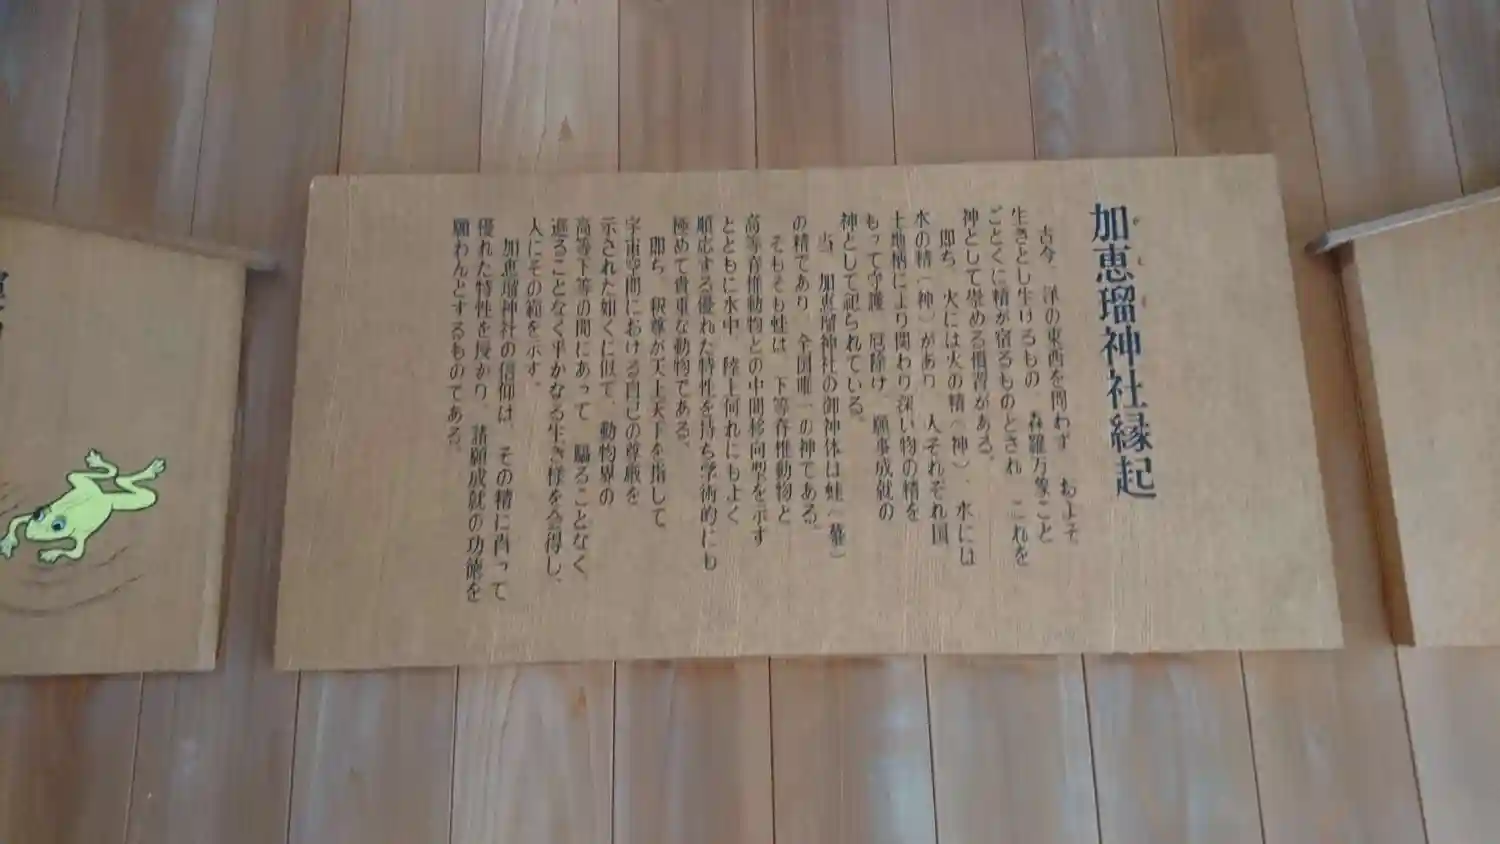 加恵瑠神社縁起
古今、洋の東西を問わず およそ
生きとし生けるもの 森羅万象こと
ごとくに精が宿るものとされ これを
神として崇める慣習がある。
即ち、火には火の精（神）、水には
水の精（神）があり 人それぞれ国
土地柄により関わり深い物の精を
もって守護 厄除け、願事成就の
神として祀られている。
当 加恵瑠神社の御神体は蛙（蟇）
の精であり 全国唯一の神である。
そもそも蛙は 下等脊椎動物と
高等脊椎動物との中間移向型を示す
とともに水中 陸上何れにもよく
順応する優れた特性を持ち学術的にも
極めて貴重な動物である。
即ち 釈尊が天上天下を指して
宇宙空間における自己の尊厳を
示された如くに似て 動物界の
高等下等の間にあって 驕ることなく
ることなく平かなる生き様を会得し、
人にその範を示す。
加恵瑠神社の信仰は その精に肖って
優れた特性を授かり 諸願成就の功徳を
願わんとするものである。